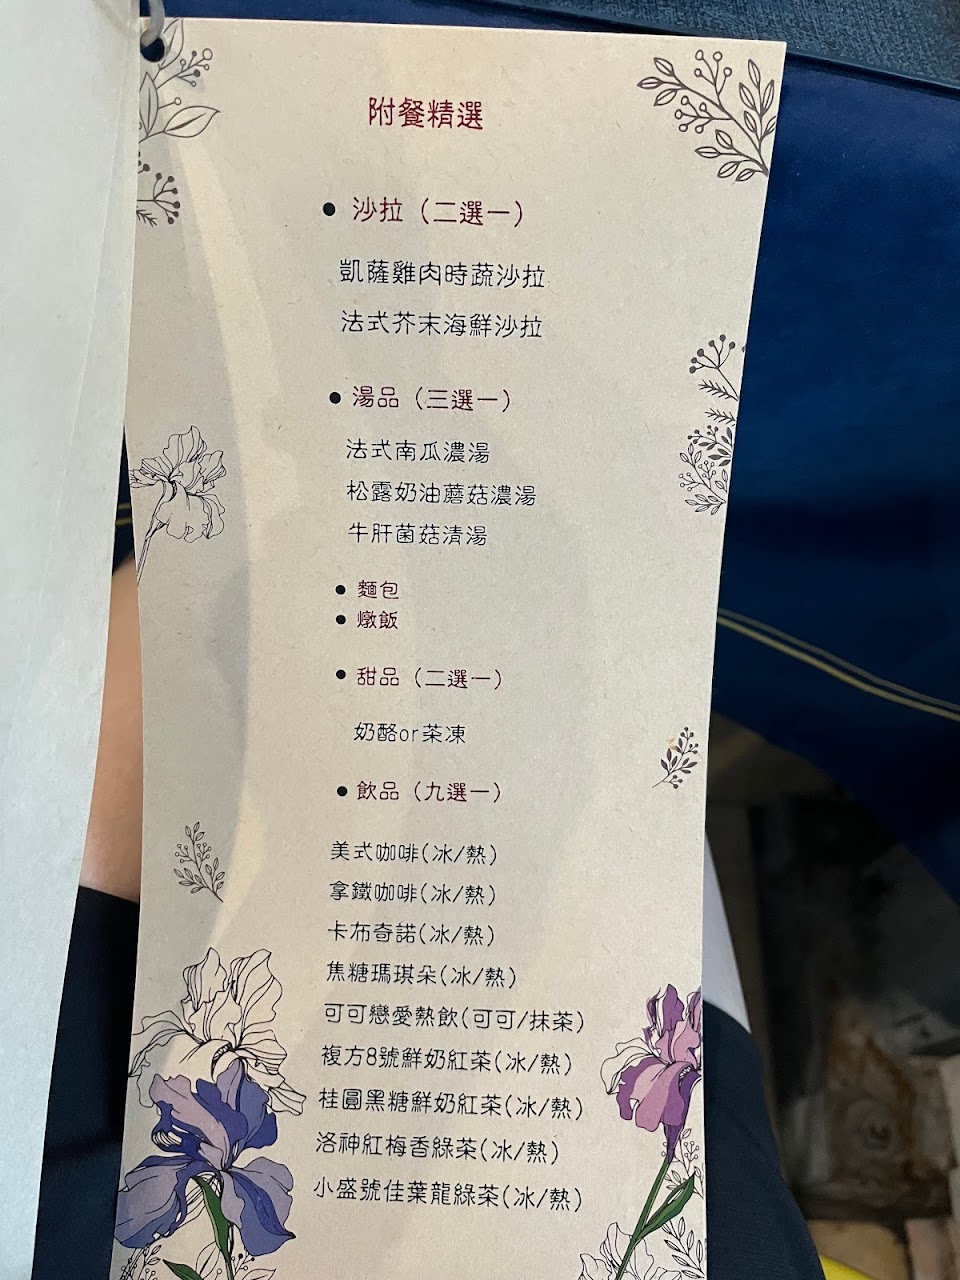 附餐精選
● 沙拉（二選一）
凱薩雞肉時蔬沙拉
法式芥末海鮮沙拉
● 湯品（三選一）
法式南瓜濃湯
松露奶油蘑菇濃湯
牛肝菌菇清湯
● 麵包
● 燉飯
● 甜品（二選一）
奶酪or茶凍
● 飲品（九選一）
美式咖啡(冰/熱)
拿鐵咖啡(冰/熱)
卡布奇諾(冰/熱)
焦糖瑪琪朵(冰/熱)
可可戀愛熱飲(可可/抹茶)
複方8號鮮奶紅茶(冰/熱)
桂圓黑糖鮮奶紅茶(冰/熱)
洛神紅梅香綠茶(冰/熱)
小盛號佳葉龍綠茶(冰/熱)